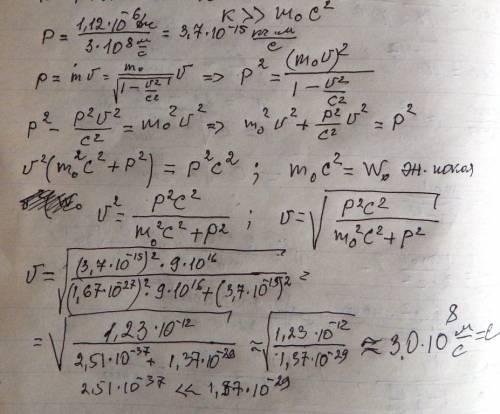 K >> m₀c²
P = (1,12·10⁻⁶ Дж)/(3·10⁸ м/с) = 3,7·10⁻¹⁵ кг·м/с
p = mv = m₀/√(1 - v²/c²) v => P² = (m₀v)²/(1 - v²/c²)
P² - P²v²/c² = m₀²v² => m₀²v² + P²/c² v² = P²
v²(m₀²c² + P²) = P²c² ; m₀c² = W₀ эн. покоя
v² = P²c²/(m₀²c² + P²) ; v = √(P²c²/(m₀²c² + P²))
v = √((3,7·10⁻¹⁵)²·9·10¹⁶/((1,67·10⁻²⁷)²·9·10¹⁶ + (3,7·10⁻¹⁵)²)) =
= √(1,23·10⁻¹²/(2,51·10⁻³⁷ + 1,37·10⁻²⁹)) ≈ √(1,23·10⁻¹²/1,37·10⁻²⁹) ≈ 3,0·10⁸ м/с = c
2,51·10⁻³⁷ << 1,37·10⁻²⁹